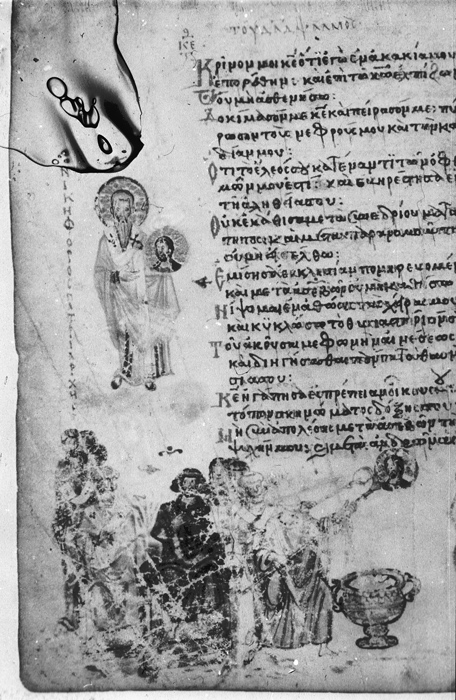 Τοῦ Δαδ ψαλμος
Κρῖνόν μοι κε ὅτι ἐγὼ ἐν ἀκακία μου
ἐπορεύθην· καὶ ἐπὶ τῷ κω ἐλπίζων
οὐ μὴ ἀσθενήσω:
Δοκίμασόν με κε καὶ πείρασόν με· πύ
ρωσον τοὺς νεφρούς μου καὶ τὴν κα
δίαν μου:
Ὅτι τὸ ἔλεός σου κατέναντι τῶν ὀφθα
μῶν μου ἐστί· καὶ εὐηρέστησα ἐν
τῇ ἀληθεία σου:
Οὐκ ἐκάθισα μετὰ συνεδρίου μαται
τητος· καὶ μετὰ παρανομούντων
οὐ μὴ εἰσέλθω:
Ἐμίσησα ἐκκλησίαν πονηρευομέν
καὶ μετὰ ἀσεβῶν οὐ μὴ καθίσω
Νίψομαι ἐν ἀθώοις τὰς χεῖρας μου
καὶ κυκλώσω τὸ θυσιαστήριόν σ
Τοῦ ἀκοῦσαι με φωνῆς αἰνέσεως
καὶ διηγήσασθαι πάντα τὰ θαυμ
σιά σου:
Κε ἠγάπησα εὐπρέπειαν οἴκου σου
τόπον σκηνώματος δόξης σου:
Μὴ συναπολέσης μετὰ ἀσεβῶν τὴ
ψυχήν μου· καὶ μετὰ ἀνδρῶν αἱμα